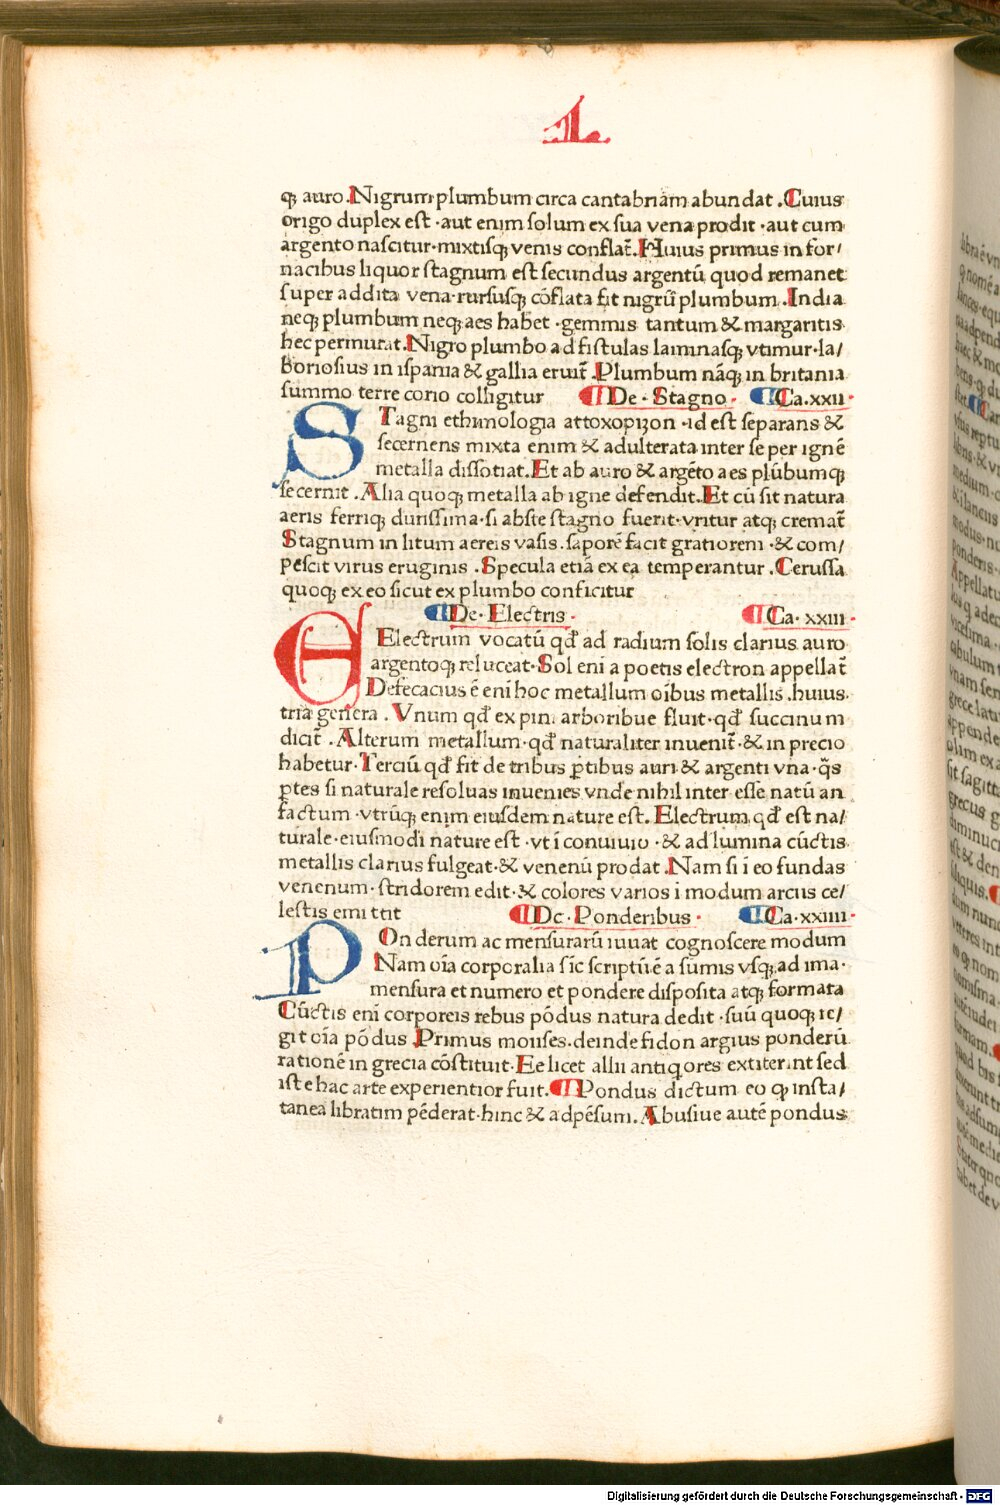 L
qꝫ auro. Nigrum plumbum circa cantabriam abundat. Cuius
origo duplex est·aut enim solum ex sua vena prodit·aut cum
argento nascitur·mixtisqꝫ venis conflat̃. Huius primus in for/
nacibus liquor stagnum est secundus argentū quod remanet
super addita vena·rursusqꝫ cōflata fit nigrū plumbum. India
neqꝫ plumbum neqꝫ aes habet·gemmis tantum & margaritis
hec permutat. Nigro plumbo ad fistulas laminasqꝫ vtimur·la/
boriosius in ispania & gallia eruit̃. Plumbum nāqꝫ in britania
summo terre corio colligitur De·Stagno· Ca.xxii·
STagni ethimologia attoxopizon·id est separans &
secernens mixta enim & adulterata inter se per ignē
metalla dissotiat. Et ab auro & argēto aes plūbumqꝫ
secernit. Alia quoqꝫ metalla ab igne defendit. Et cū sit natura
aeris ferriqꝫ durissima·si absꝗ stagno fuerit·vritur atqꝫ cremat̃
Stagnum in litum aereis vasis. saporē facit gratiorem·& com/
pescit virus eruginis. Specula etiā ex ea temperantur. Cerussa
quoqꝫ ex eo sicut ex plumbo conficitur
De·Electris· Ca·xxiii·
EElectrum vocatū qđ ad radium solis clarius auro
argentoqꝫ reluceat·Sol eni a poetis electron appellat̃
Defecacius ē eni hoc metallum oībus metallis.huius
tria genera. Vnum qđ ex pini arboribue fluit·qđ succinum
dicit̃. Alterum metallum·qđ naturaliter inuenit̃·& in precio
habetur·Terciū qđ fit de tribus ꝑtibus auri & argenti vna·q̄s
ꝑtes si naturale resoluas inuenies vnde nihil inter esse natū an
factum·vtrūqꝫ enim eiusdem nature est. Electrum qđ est na/
turale·eiusmodi nature est·vt ī conuiuio·& ad lumina cūctis
metallis clarius fulgeat·& venenū prodat. Nam si ī eo fundas
venenum·stridorem edit·& colores varios ī modum arcus ce/
lestis emittit De·Ponderibus· Ca·xxiiii·
POnderum ac mensurarū iuuat cognoscere modum
Nam oīa corporalia sīc scriptū ē a sūmis vsqꝫ ad ima·
mensura et numero et pondere disposita atqꝫ formata
Cūctis eni corporeis rebus pōdus natura dedit·suū quoqꝫ re/
git oīa pōdus Primus moises.deinde fidon argius ponderū
rationē in grecia cōstituit·Ee licet allii antiqores extiterint sed
iste hac arte experientior fuit. Pondus dictum eo ꝙ insta/
tanea libratim pēderat·hinc & adpēsum. Abusiue autē pondus
Digitalisierung gefördert durch die Deutsche Forschungsgemeinschaft - DFG